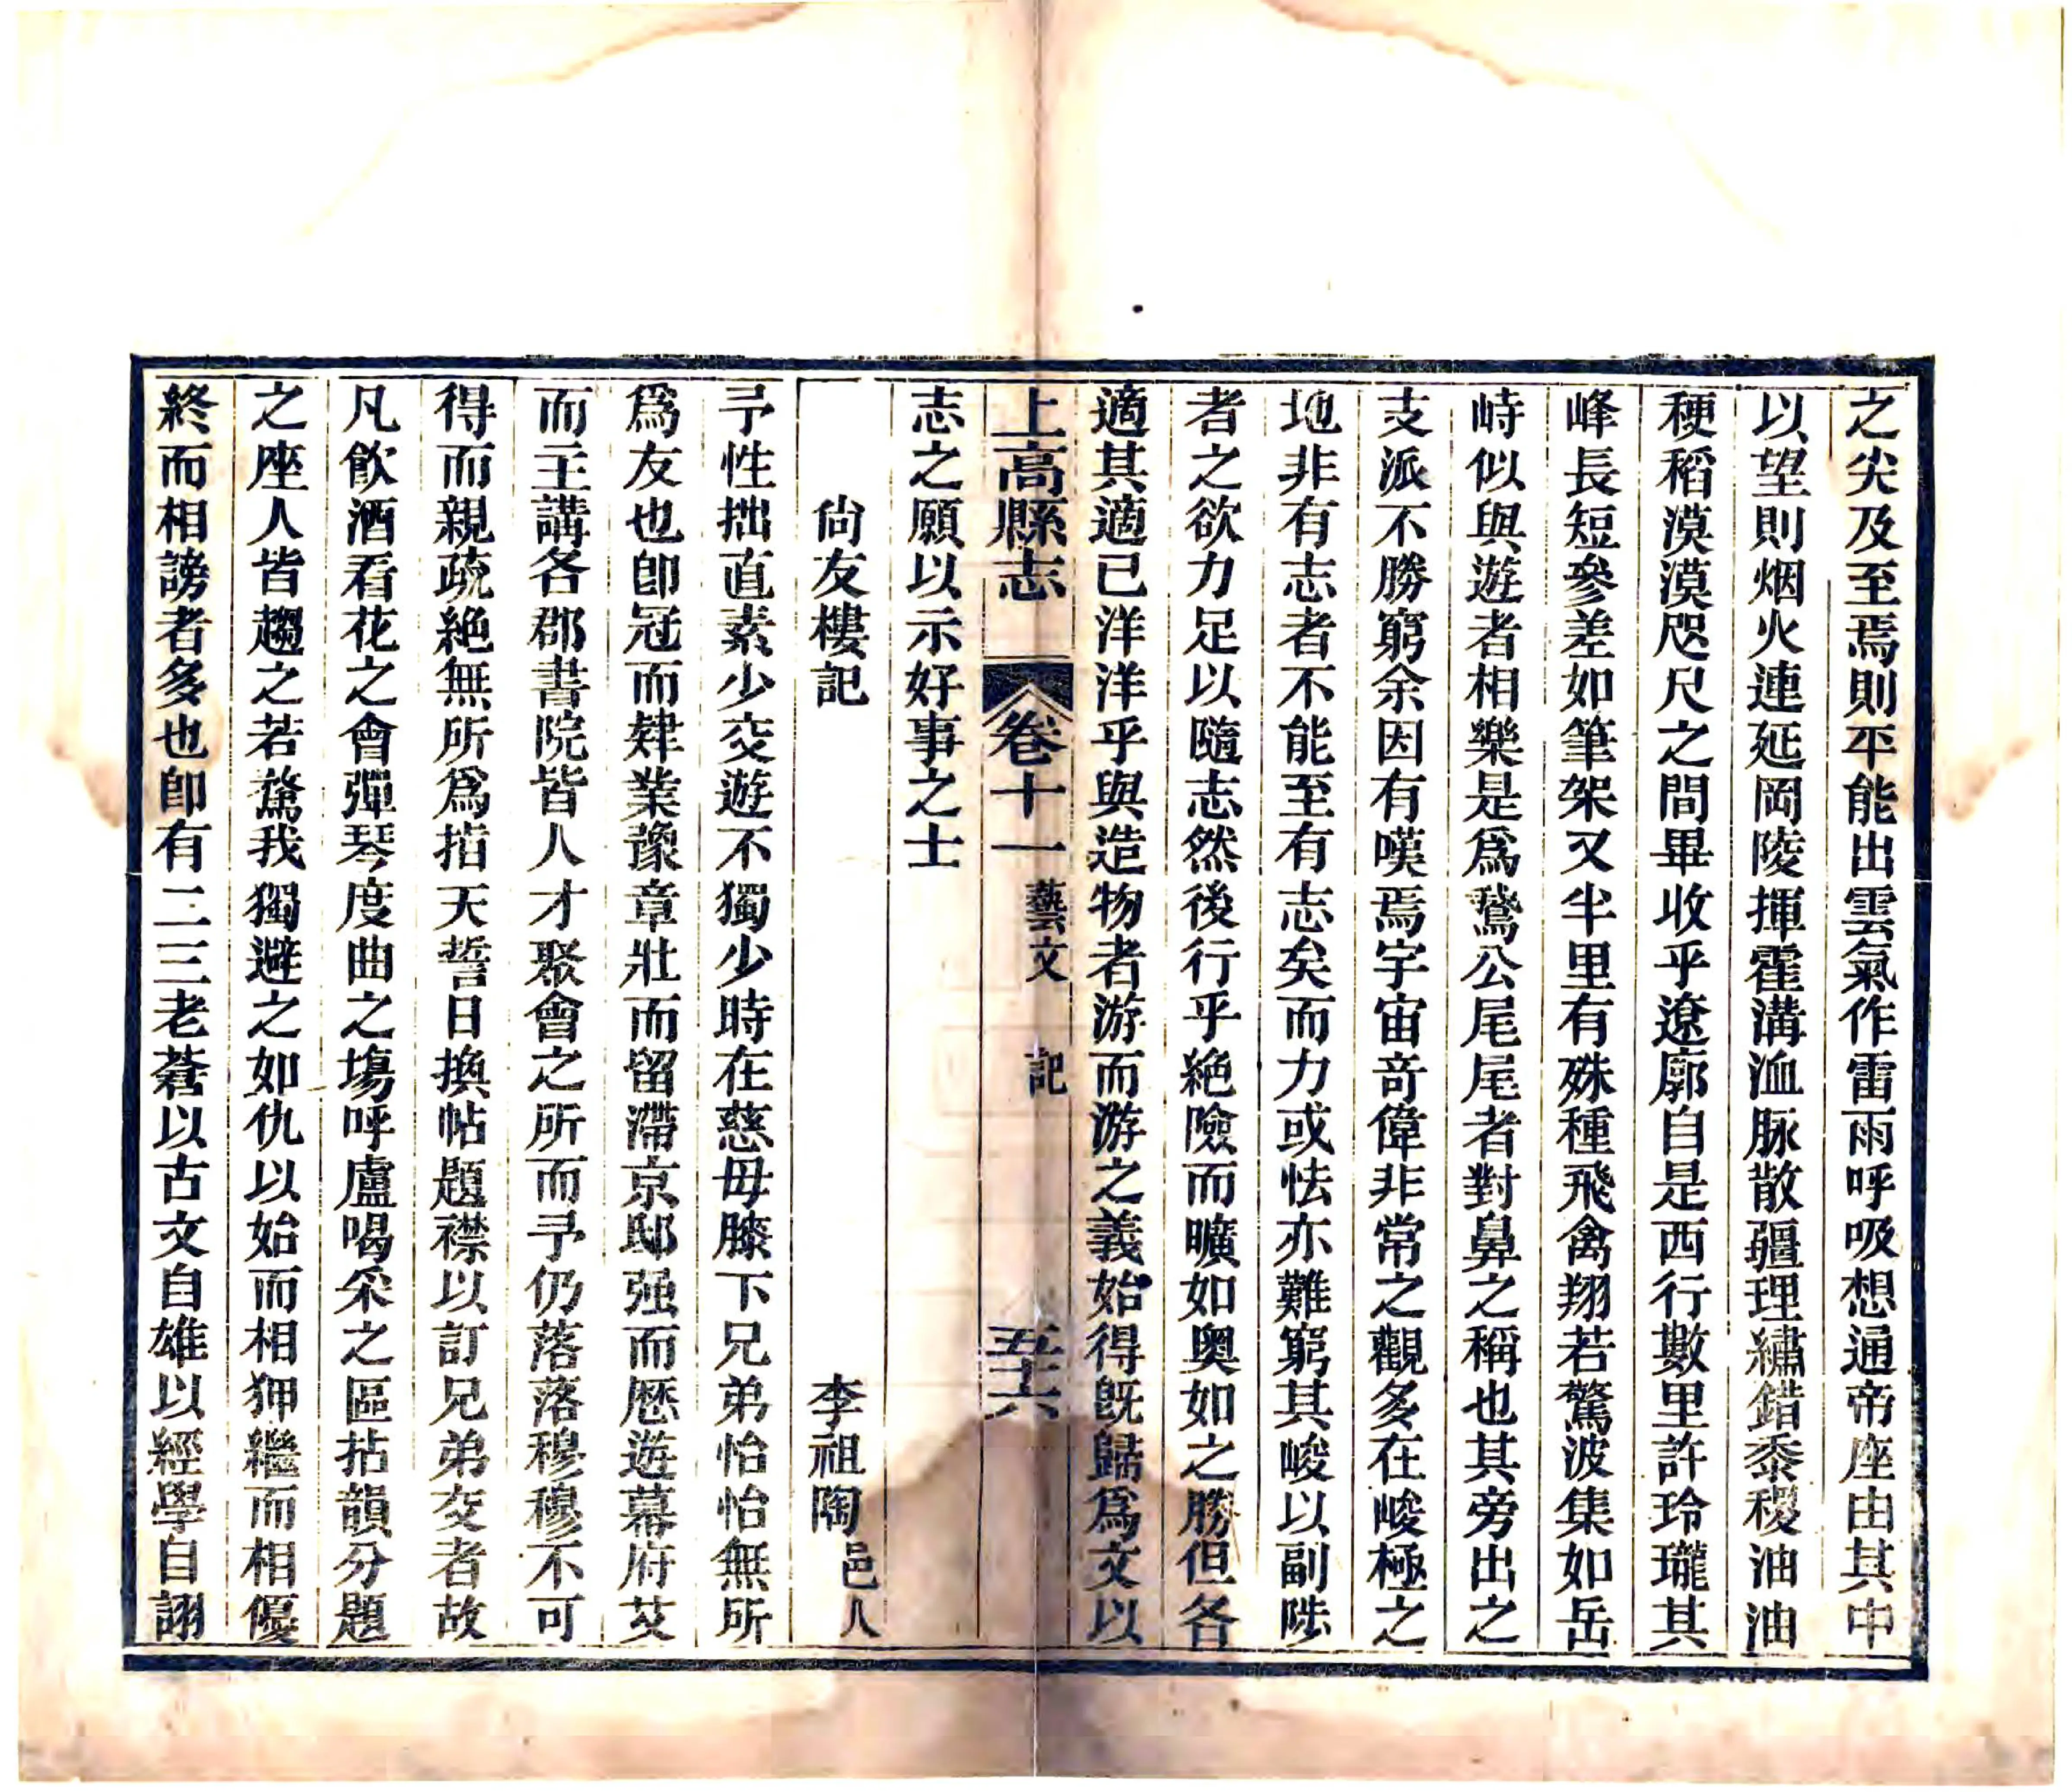 之尖及至焉則平能出雲氣作雷雨呼吸想通帝座由其中
以望則烟火連延岡陵揮霍溝洫脉散疆理繡錯黍稷油油
稉稻漠漠咫尺之間畢收乎遼廓自是西行數里許玲瓏其
峰長短參差如筆架又半里有殊種飛禽翔若驚波集如岳
峙似與遊者相樂是爲鵞公尾尾者對鼻之稱也其旁出之
支派不勝窮余因有嘆焉宇宙奇偉非常之觀多在峻極之
地非有志者不能至有志矣而力或怯亦難窮其峻以副陟
者之欲力足以隨志然後行乎絶險而曠如奥如之勝但各
適其適已洋洋乎與造物者游而游之義始得旣歸爲文以
上高縣志 卷十一 藝文 記 五十六
志之願以示好事之士
尙友樓記 李祖陶邑人
予性拙直素少交遊不獨少時在慈毋膝下兄弟怡怡無所
爲友也卽冠而肄業豫章壯而留滯京邸强而歷遊幕府艾
而主講各郡書院皆人才聚會之所而予仍落落穆穆不可
得而親疏絶無所爲指天誓日換帖題襟以訂兄弟交者故
凡飲酒看花之會彈琴度曲之塲呼盧喝采之區拈韻分題
之座人皆趨之若鶩我獨避之如仇以始而相狎繼而相優
終而相謗者多也卽有二三老蒼以古文自雄以經學自詡